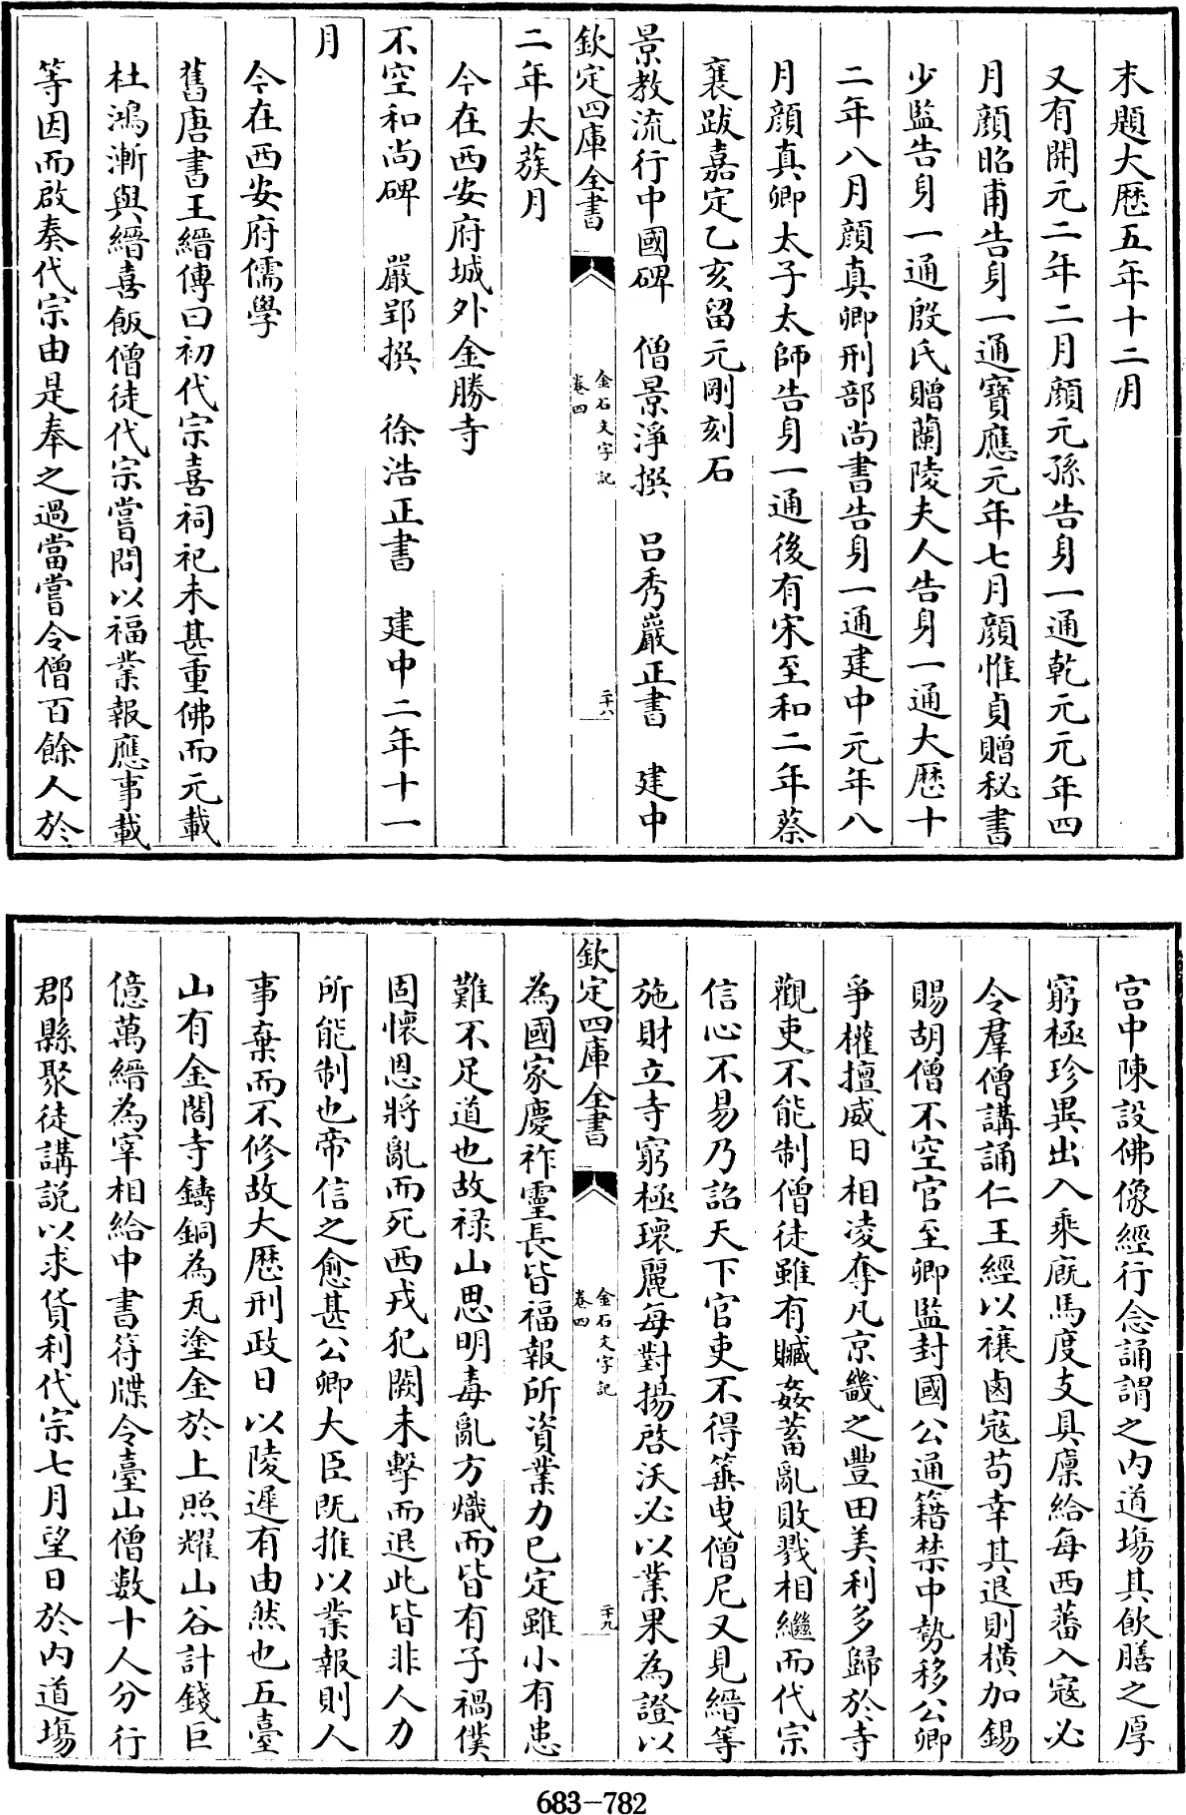 末題大厯五年十二月
又有開元二年二月顔元孫告身一通乾元元年四
月顔昭甫告身一通寶應元年七月顔惟貞贈秘書
少監告身一通殷氏贈蘭陵夫人告身一通大厯十
二年八月顔真卿刑部尚書告身一通建中元年八
月顔真卿太子太師告身一通後有宋至和二年蔡
襄跋嘉定乙亥留元剛刻石
景教流行中國碑　僧景淨撰　呂秀巖正書　建中
欽定四庫全書　金石文字記　卷四　二十八
二年太蔟月
今在西安府城外金勝寺
不空和尚碑　嚴郢撰　徐浩正書　建中二年十一
月
今在西安府儒學
舊唐書王縉傳曰初代宗喜祠祀未甚重佛而元載
杜鴻漸與縉喜飯僧徒代宗嘗問以福業報應事載
等因而啟奏代宗由是奉之過當嘗令僧百餘人於
宫中陳設佛像經行念誦謂之内道塲其飲膳之厚
窮極珍異出入乘廐馬度支具廩給每西蕃入寇必
令羣僧講誦仁王經以禳鹵寇苟幸其退則横加錫
賜胡僧不空官至卿監封國公通籍禁中勢移公卿
爭權擅威日相凌奪凡京畿之豐田美利多歸於寺
觀吏不能制僧徒雖有贓姦蓄亂敗戮相繼而代宗
信心不易乃詔天下官吏不得箠曵僧尼又見縉等
施財立寺窮極瓌麗每對揚啓沃必以業果為證以
欽定四庫全書　金石文字記　卷四　二十九
為國家慶祚靈長皆福報所資業力已定雖小有患
難不足道也故禄山思明毒亂方熾而皆有子禍僕
固懷恩將亂而死西戎犯闕未擊而退此皆非人力
所能制也帝信之愈甚公卿大臣既推以業報則人
事棄而不修故大厯刑政日以陵遲有由然也五臺
山有金閣寺鑄銅為瓦塗金於上照耀山谷計錢巨
億萬縉為宰相給中書符牒令臺山僧數十人分行
郡縣聚徒講説以求貨利代宗七月望日於内道塲
683-782